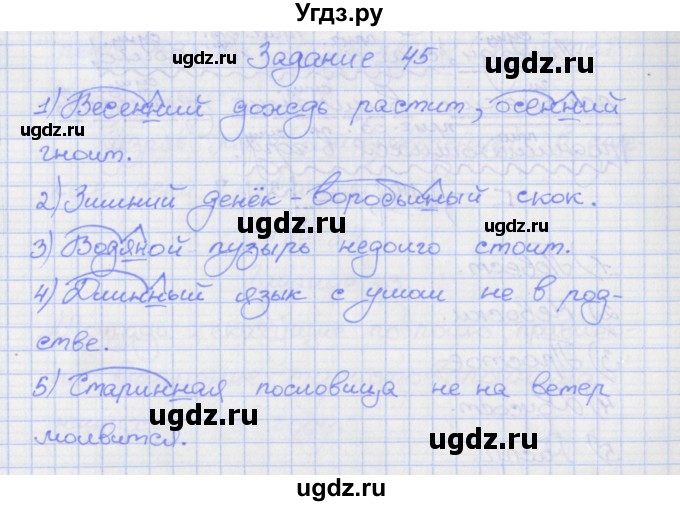 Угдз.ру
Задание 45
1) Весенний дождь растит, осенний
гноит.
2) Зимний денёк - воробьиный скок.
3) Водяной пузырь недолго стоит.
4) Длинный язык с умом не в род-
стве.
5) Старинная пословица не на ветер
молвится.
ugdz.ru
ugdz.ru
ugdz.ru
ugdz.ru
ugdz.ru
ugdz.ru
ugdz.ru
ugdz.ru
ugdz.ru
ugdz.ru
ugdz.ru